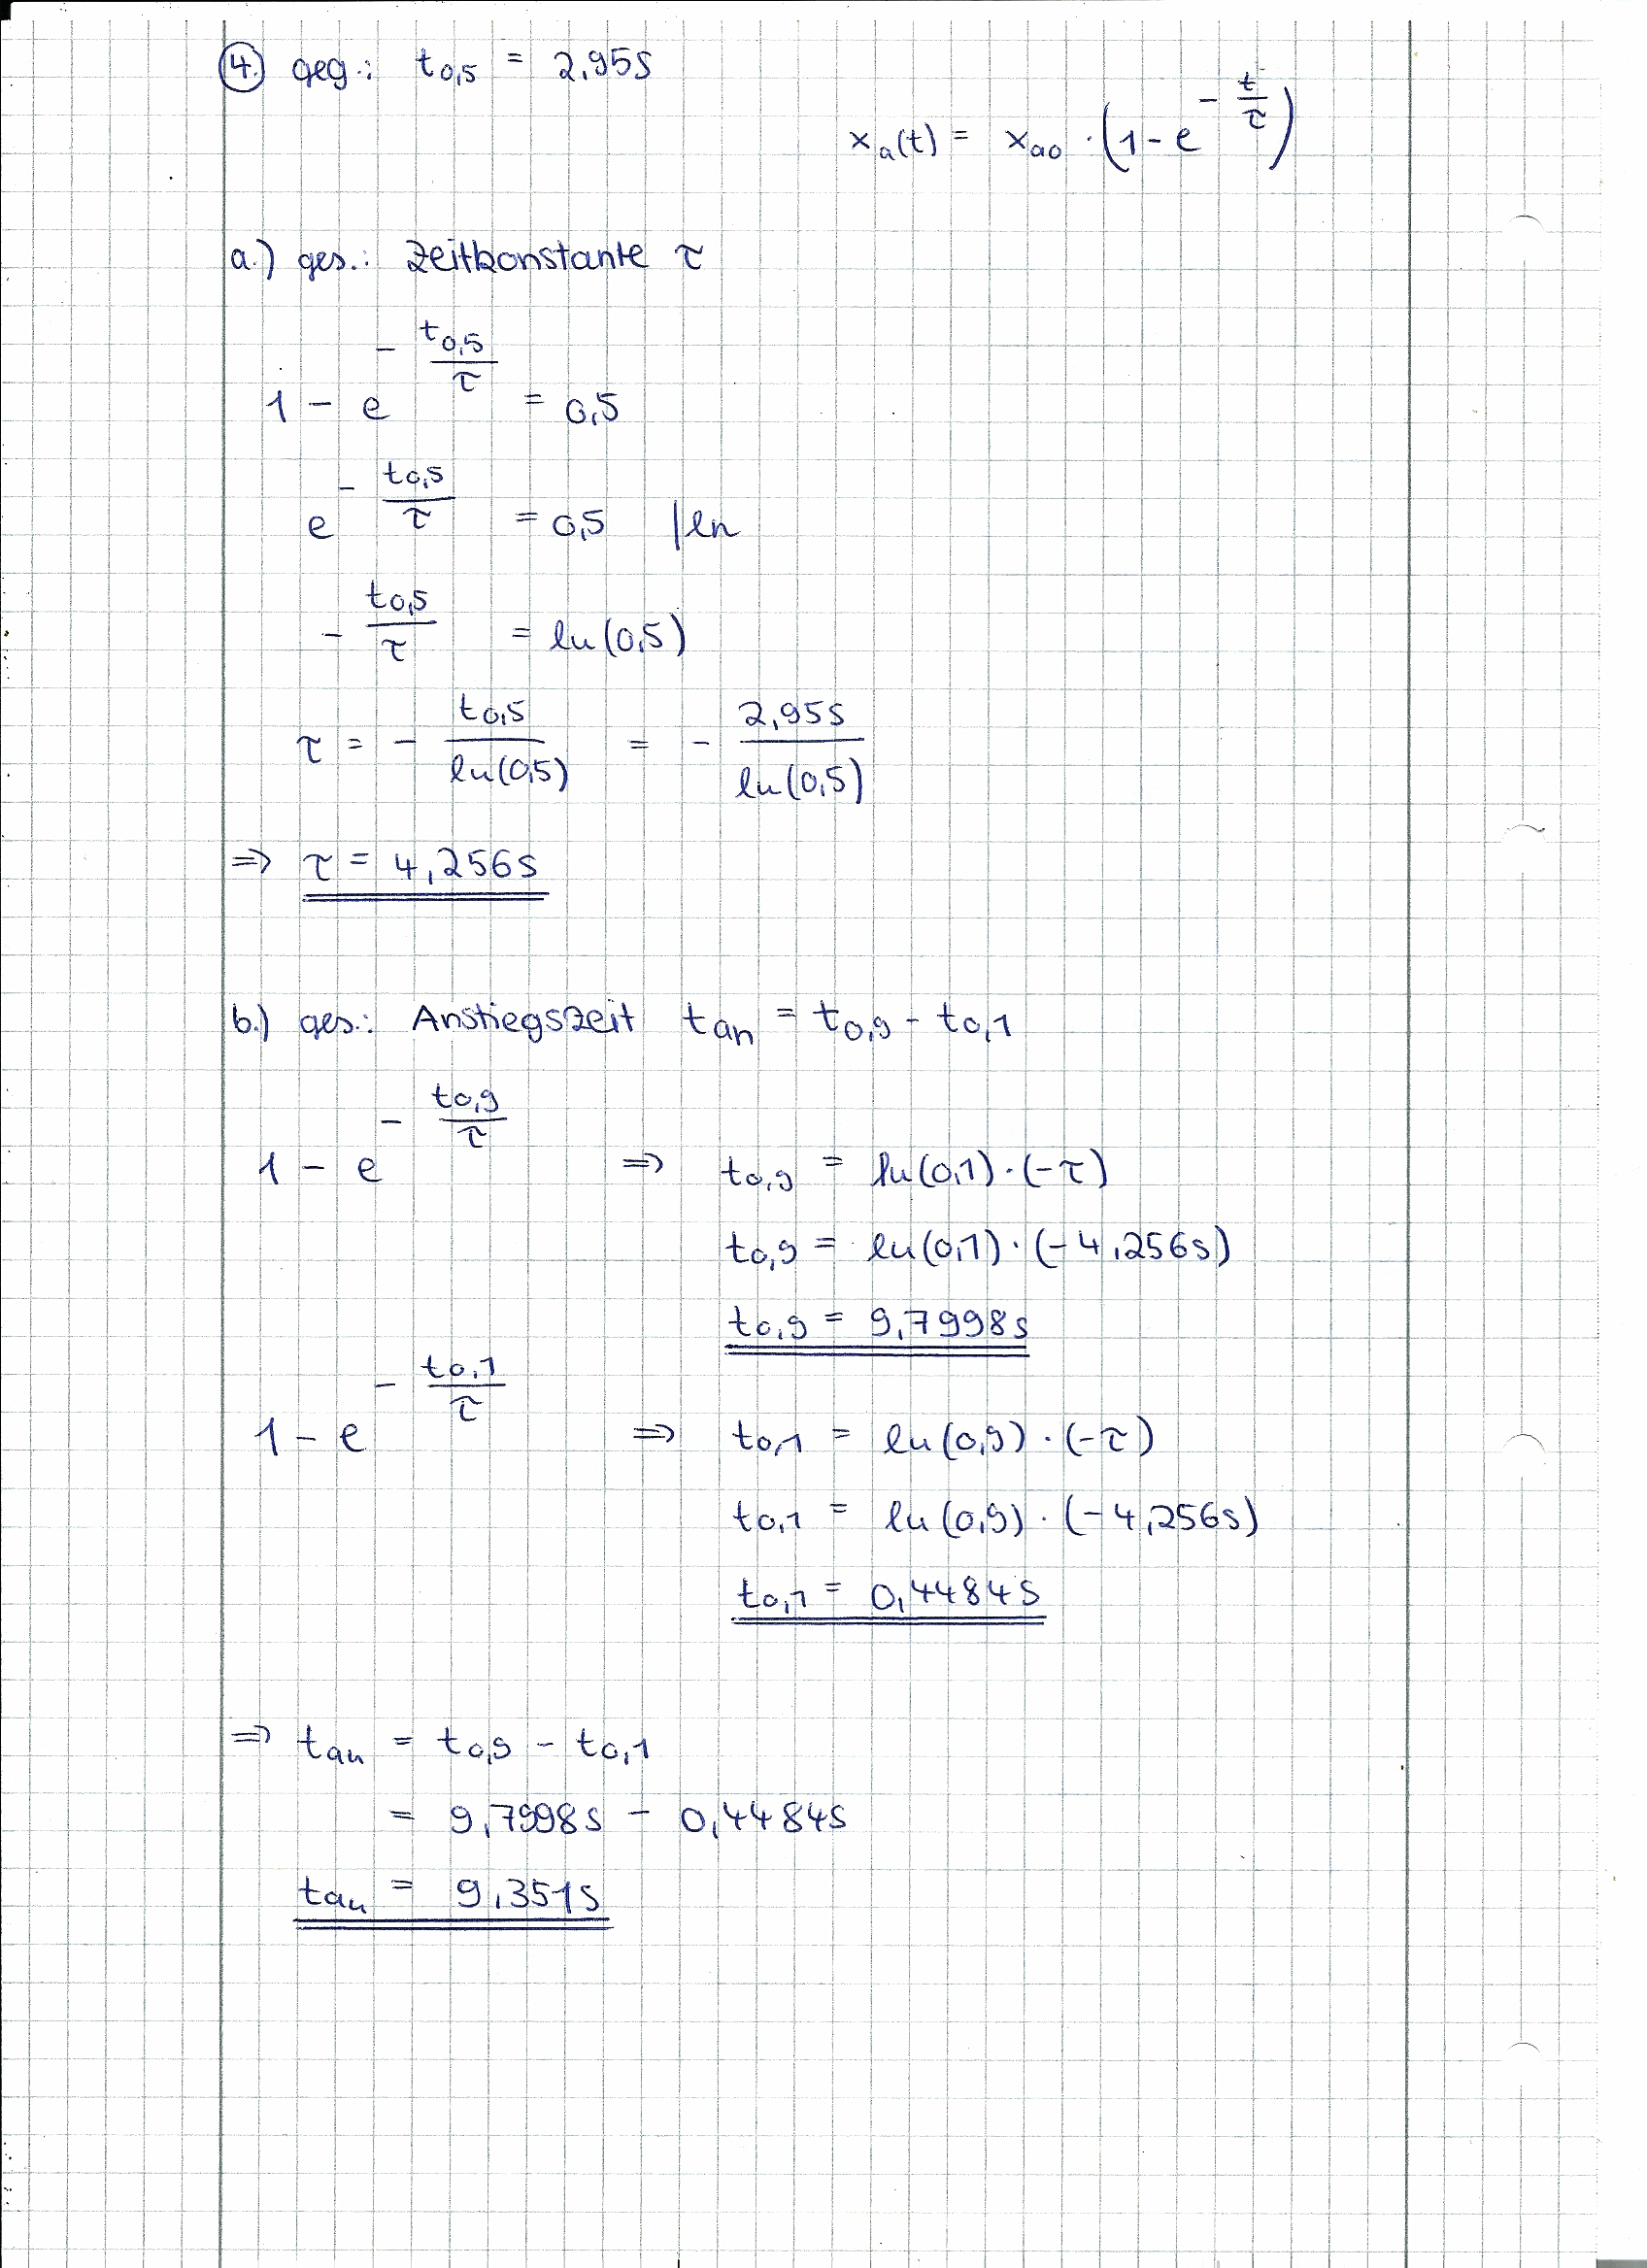 4. geg.: t0,5 = 2,95s
xa(t) = xa0 · (1 - e^(-t/τ))
a.) ges.: Zeitkonstante τ
1 - e^(-t0,5/τ) = 0,5
e^(-t0,5/τ) = 0,5 |ln
- t0,5/τ = ln(0,5)
τ = - t0,5/ln(0,5) = - 2,95s/ln(0,5)
⇒ τ = 4,256s
b.) ges.: Anstiegszeit tan = t0,9 - t0,1
1 - e^(-t0,9/τ) ⇒ t0,9 = ln(0,1)·(-τ)
t0,9 = ln(0,1)·(-4,256s)
t0,9 = 9,7998s
1 - e^(-t0,1/τ) ⇒ t0,1 = ln(0,9)·(-τ)
t0,1 = ln(0,9)·(-4,256s)
t0,1 = 0,4484s
⇒ tan = t0,9 - t0,1
= 9,7998s - 0,4484s
tan = 9,351s